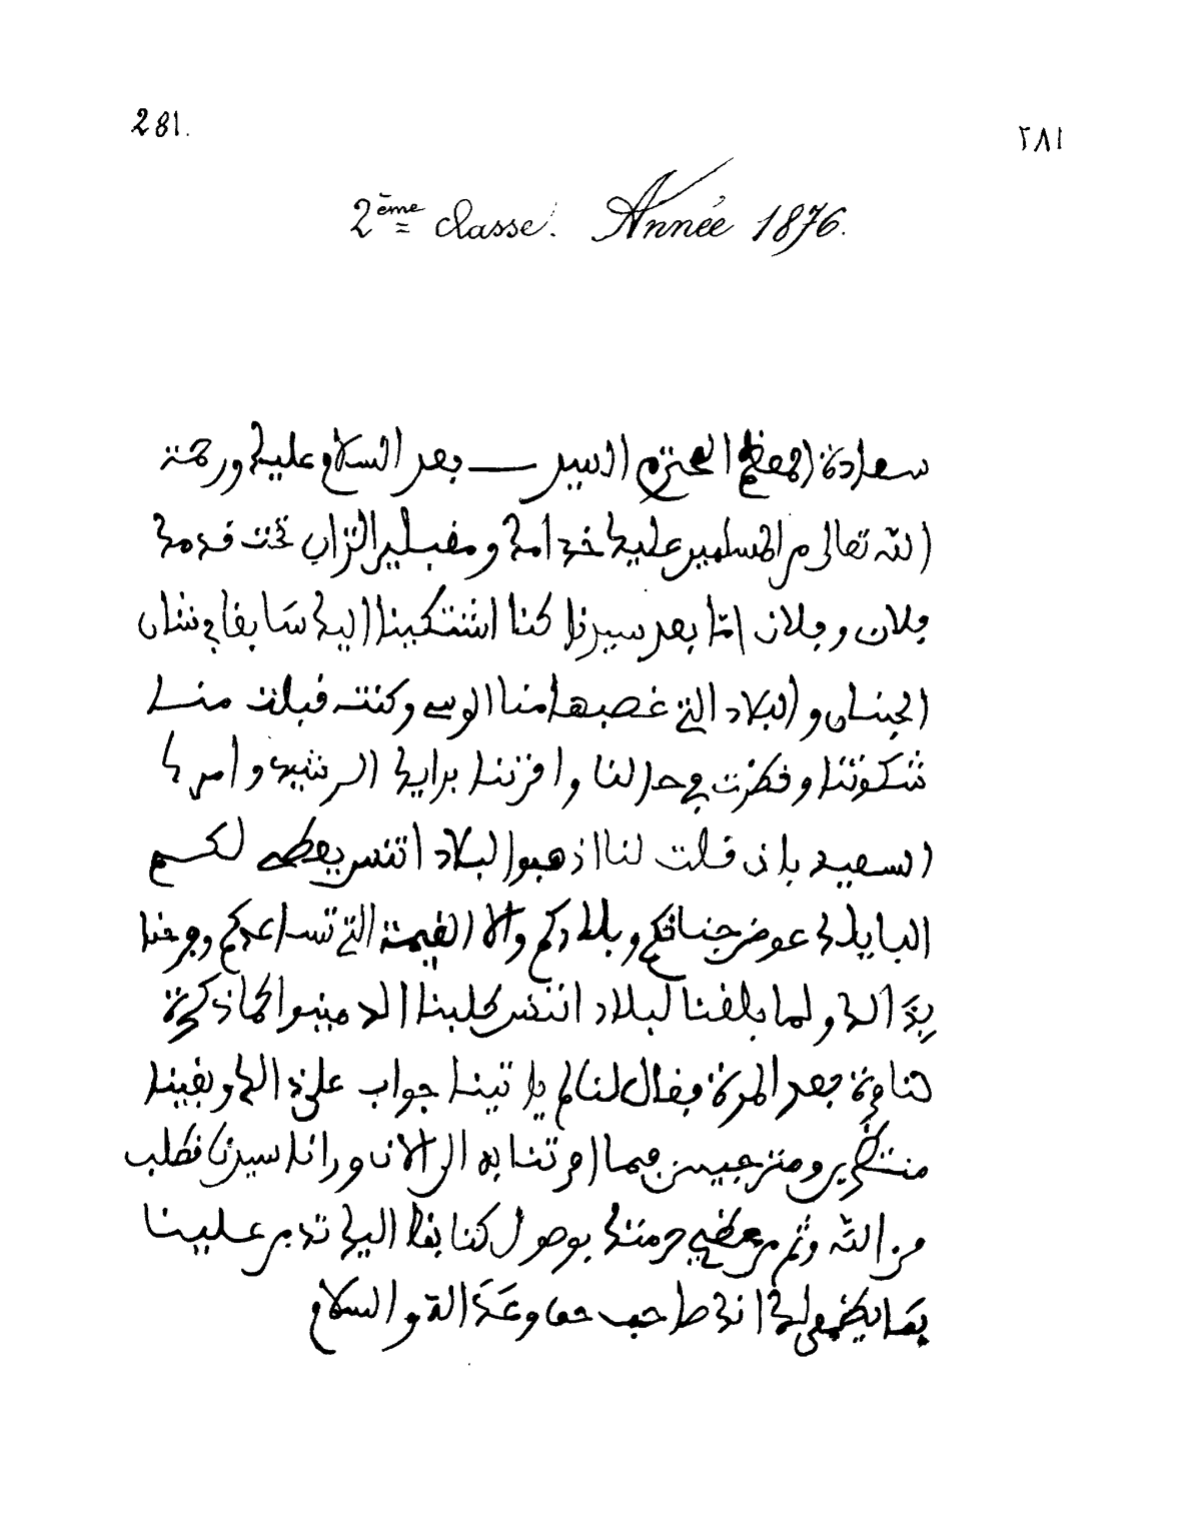 281.
٢٨١
2ème classe. Année 1876.
سعادة المعظم المحترم السيد بعد السلام عليك ورحمة
الله تعالى من المسلمين عليك خدامك ومقبلين التراب تحت قدمك
فلان وفلان امّا بعد سيدنا كنا اشتكينا اليك سَابقا في شان
الجنان والبلاد التي غصبها منا الوسي وكنت قبلت منا
شكوتنا وفكرت في حالنا وافرزنا برايك الرشيد وامرك
السعيد بان قلت لنا اذهبوا لبلاد اتنس يعطي لكم
البايلك عوض جنانكم وبلادكم والا القيمة التي تساعدكم وفرحنا
بذَالك ولما بلغنا لبلاد اتنس طلبنا الدمينوا كما ذكر
مرة بعد المرة فقال لنا لم ياتينا جواب على ذالك وبقينا
منتظرين ومترجيين فيما امرتنا به الى الان ورانا سيدنا نطلب
من الله وثم من عظيم حرمتك بوصول كتابنا اليك تدبر علينا
بمَا يظهر لك انك صاحب حق وعَدَالة والسلام